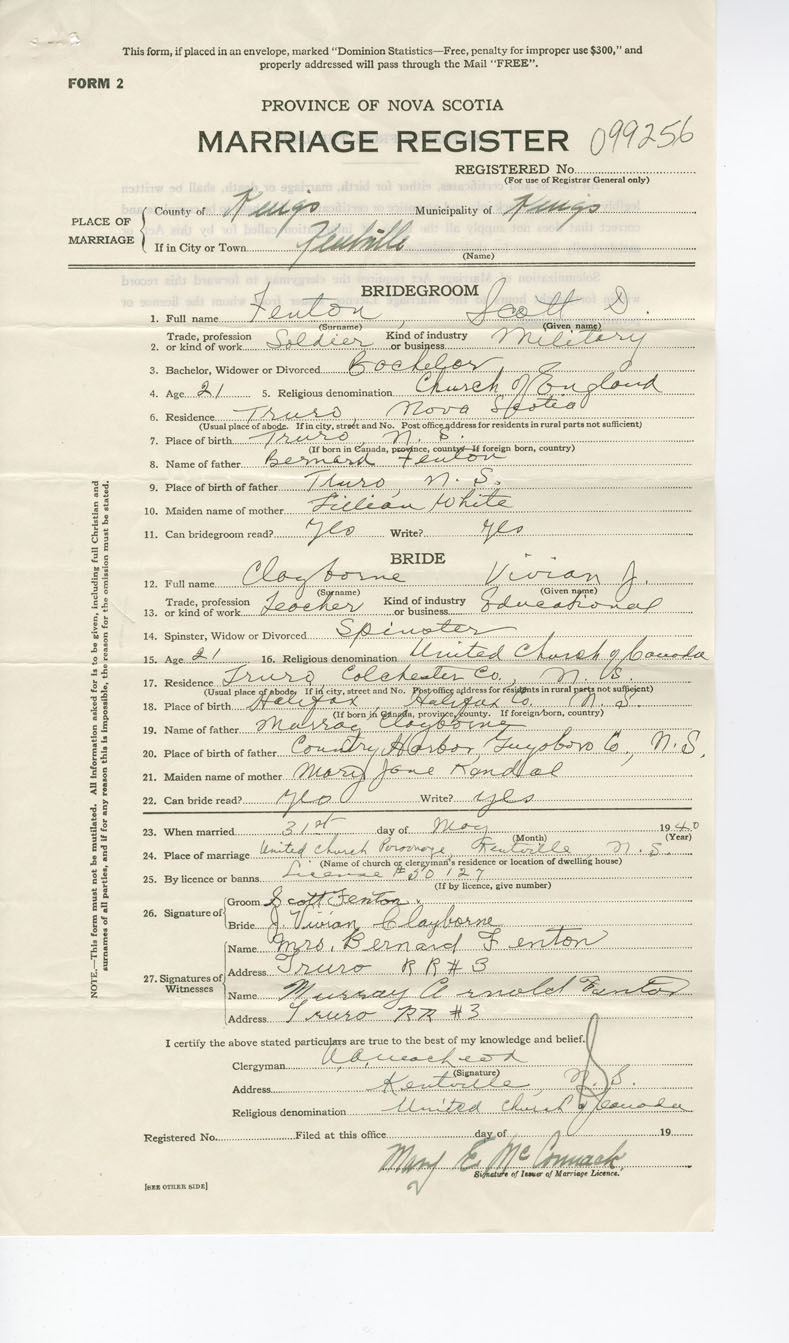 This form, if placed in an envelope, marked "Dominion Statistics—Free, penalty for improper use $300," and
properly addressed will pass through the Mail "FREE".
FORM 2
PROVINCE OF NOVA SCOTIA
MARRIAGE REGISTER 099256
REGISTERED No.
(For use of Registrar General only)
PLACE OF MARRIAGE
County of Kings Municipality of Kings
If in City or Town Kentville
(Name)
BRIDEGROOM
1. Full name Fenton, Scott D.
(Surname) (Given name)
2. Trade, profession or kind of work Soldier Kind of industry or business Military
3. Bachelor, Widower or Divorced Bachelor
4. Age 21 5. Religious denomination Church of England
6. Residence Truro, Nova Scotia
(Usual place of abode. If in city, street and No. Post office address for residents in rural parts not sufficient)
7. Place of birth Truro, N. S.
(If born in Canada, province, county—If foreign born, country)
8. Name of father Bernard Fenton
9. Place of birth of father Truro, N. S.
10. Maiden name of mother Lillian White
11. Can bridegroom read? Yes Write? Yes
BRIDE
12. Full name Clayborne Vivian J.
(Surname) (Given name)
13. Trade, profession or kind of work Teacher Kind of industry or business Educational
14. Spinster, Widow or Divorced Spinster
15. Age 21 16. Religious denomination United Church of Canada
17. Residence Truro, Colchester Co., N. S.
(Usual place of abode. If in city, street and No. Post office address for residents in rural parts not sufficient)
18. Place of birth Halifax, Halifax Co. N. S.
(If born in Canada, province, county. If foreign born, country)
19. Name of father Murray Clayborne
20. Place of birth of father Country Harbor, Guysboro Co., N. S.
21. Maiden name of mother Mary Jane Kendal
22. Can bride read? Yes Write? Yes
23. When married 31st day of May 1940
(Month) (Year)
24. Place of marriage United Church Parsonage, Kentville N. S.
(Name of church or clergyman's residence or location of dwelling house)
25. By licence or banns License # 50127
(If by licence, give number)
26. Signature of
Groom Scott Fenton
Bride J. Vivian Clayborne
27. Signatures of Witnesses
Name Mrs. Bernard Fenton
Address Truro RR # 3
Name Murray Arnold Fenton
Address Truro RR #3
I certify the above stated particulars are true to the best of my knowledge and belief.
Clergyman
(Signature)
Address Kentville, N. S.
Religious denomination United Church of Canada
Registered No. Filed at this office day of 19
Mary E. McCormack
Signature of Issuer of Marriage Licence.
[SEE OTHER SIDE]
NOTE.—This form must not be mutilated. All Information asked for is to be given, including full Christian and
surnames of all parties, and if for any reason this is impossible, the reason for the omission must be stated.